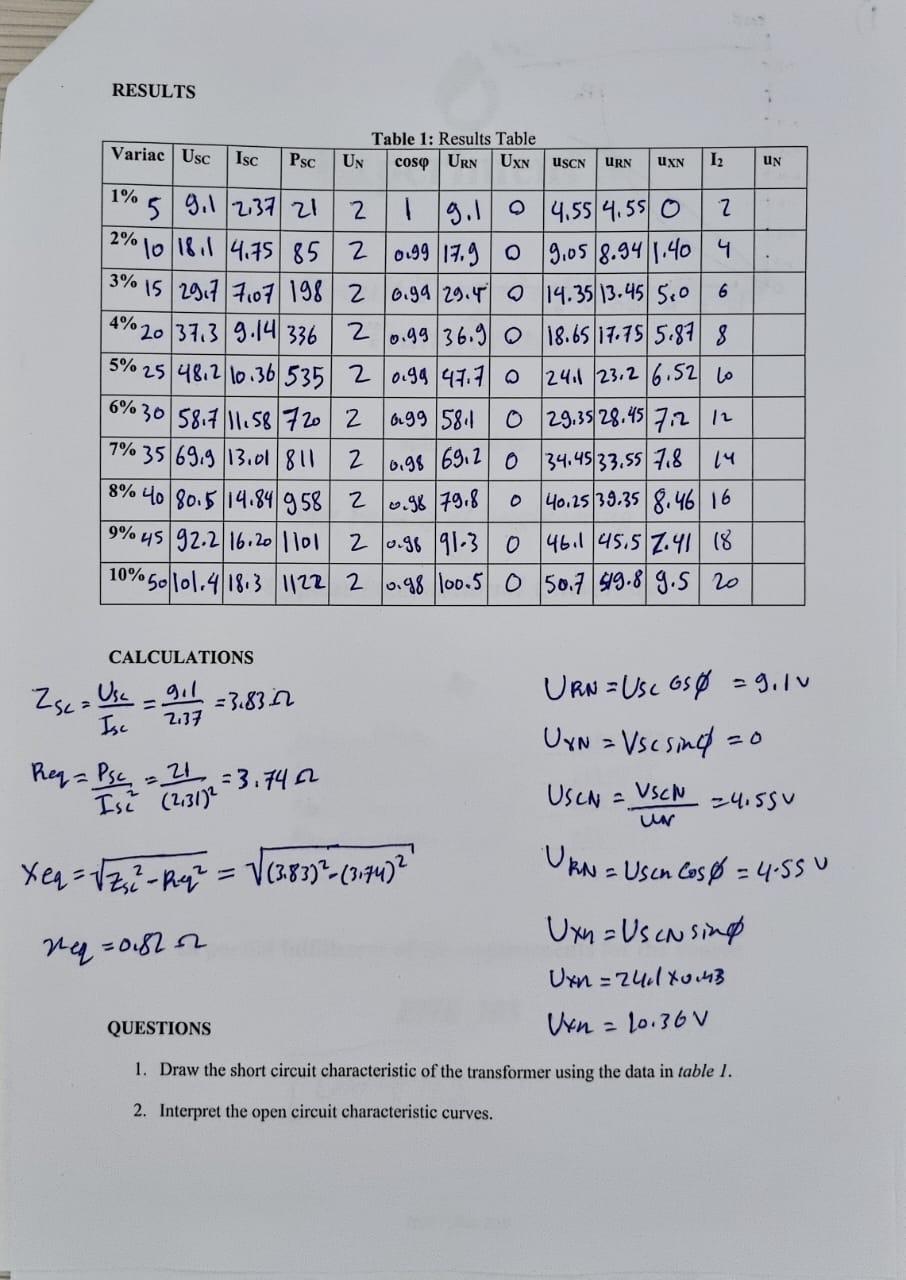 RESULTS
Table 1: Results Table
Variac USC ISC PSC UN cosφ URN UXN uSCN uRN uXN I2 uN
1% 5 9.1 2.37 21 2 1 9.1 0 4.55 4.55 0 2
2% 10 18.1 4.75 85 2 0.99 17.9 0 9.05 8.94 1.40 4
3% 15 29.7 7.07 198 2 0.99 29.4 0 14.35 13.45 5.0 6
4% 20 37.3 9.14 336 2 0.99 36.9 0 18.65 17.75 5.87 8
5% 25 48.2 10.36 535 2 0.99 47.7 0 24.1 23.2 6.52 10
6% 30 58.7 11.58 720 2 0.99 58.1 0 29.35 28.45 7.2 12
7% 35 69.9 13.01 811 2 0.98 69.2 0 34.45 33.55 7.8 14
8% 40 80.5 14.84 958 2 0.98 79.8 0 40.25 39.35 8.46 16
9% 45 92.2 16.20 1101 2 0.98 91.3 0 46.1 45.5 7.41 18
10% 50 101.4 18.3 1122 2 0.98 100.5 0 50.7 49.8 9.5 20
CALCULATIONS
Zsc = Usc/Isc = 9.1/2.37 = 3.83 Ω
Req = Psc/Isc² = 21/(2.31)² = 3.74 Ω
Xeq = √Zsc² - Req² = √(3.83)² - (3.74)²
xeq = 0.82 Ω
URN = Usc cosφ = 9.1v
UXN = Vsc sinφ = 0
USCN = VSCN/UN = 4.55v
URN = Uscn cosφ = 4.55 v
Uxn = USCN sinφ
Uxn = 24.1 x 0.43
Uxn = 10.36 V
QUESTIONS
1. Draw the short circuit characteristic of the transformer using the data in table 1.
2. Interpret the open circuit characteristic curves.